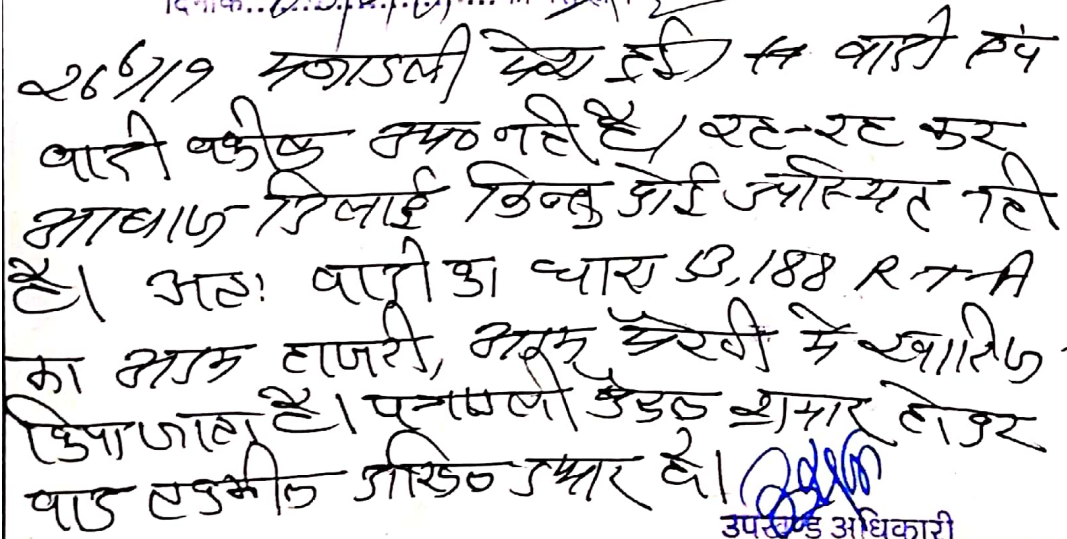 दिनांक
26/6/19 पत्रावली पेश हुई। वादी एवं
वादी वकील उप० नहीं है। रह-रह कर
आवाज दिलाई किन्तु कोई उपस्थित नहीं
है। अतः वादी का धारा 53,188 R T A
का अदम हाजरी, अदम पैरवी में खारिज
किया जाता है। पत्रावली फैसल शुमार होकर
बाद तकमील दाखिल दफ्तर हो।
उपखण्ड अधिकारी